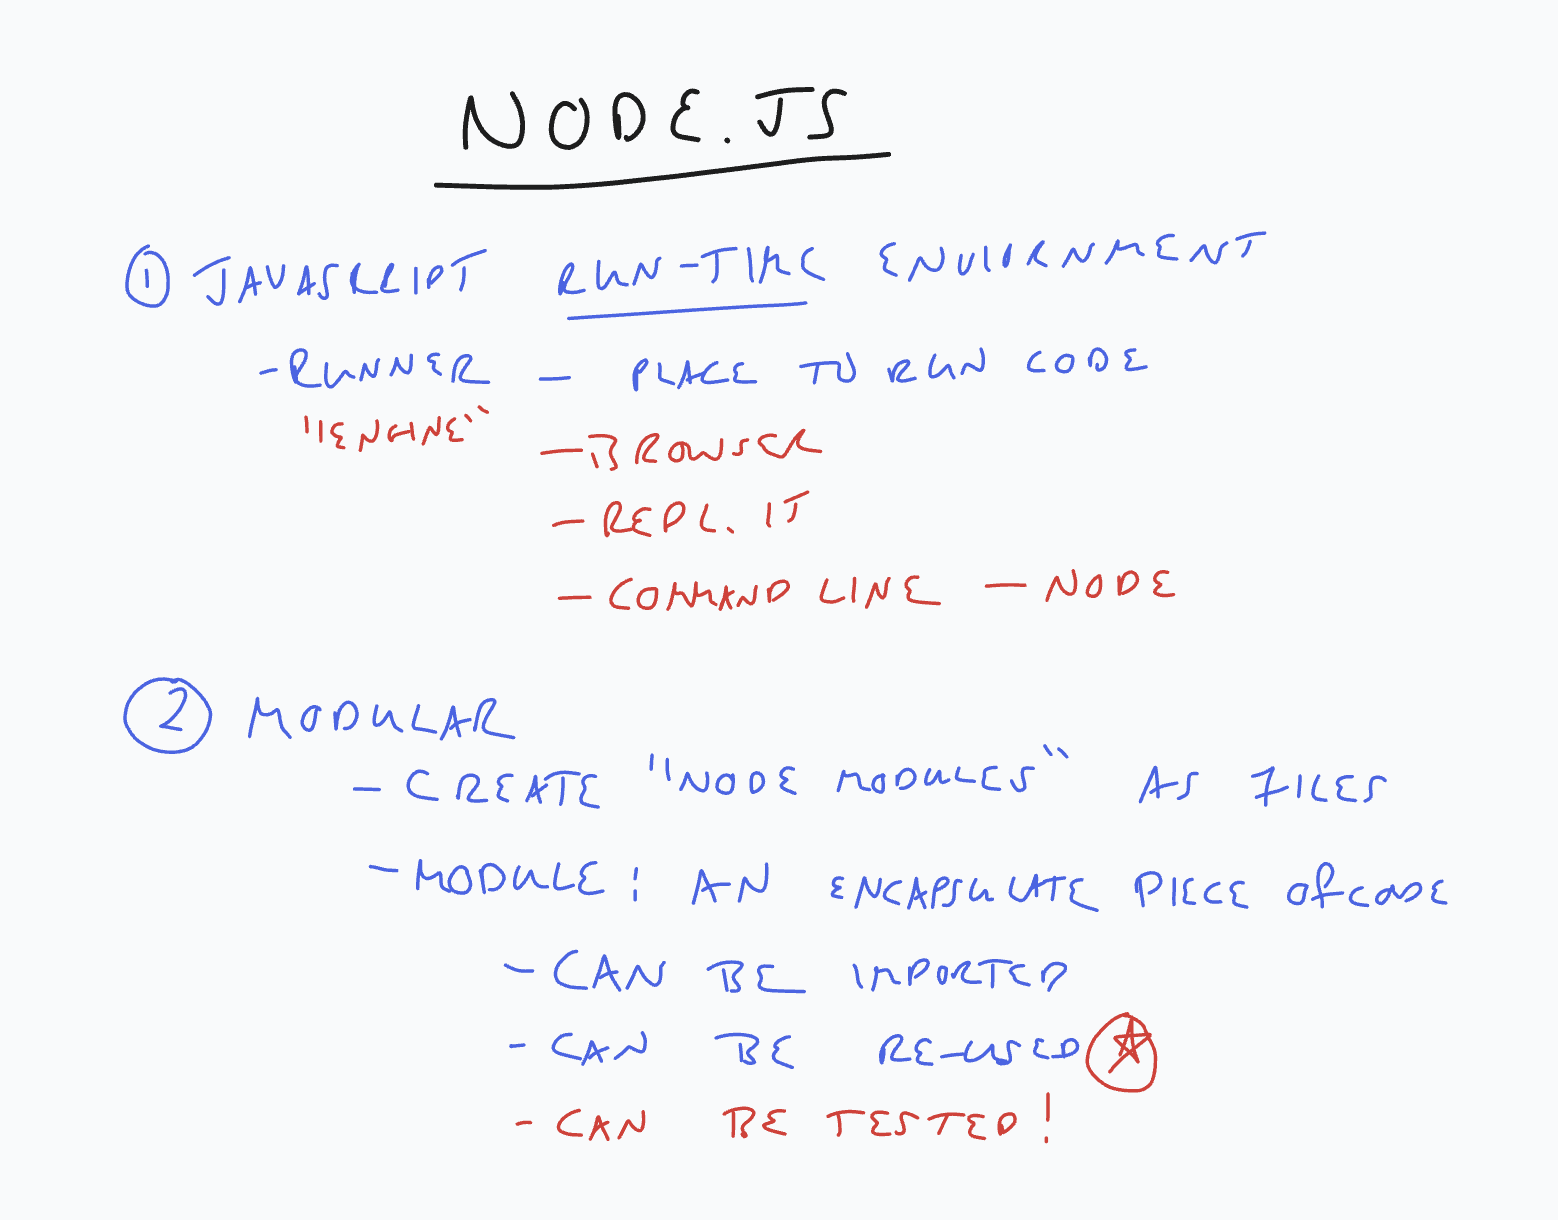 NODE.JS
① JAVASCRIPT RUN-TIME ENVIORNMENT
- RUNNER - PLACE TO RUN CODE
"ENGINE"
- BROWSER
- REPL.IT
- COMMAND LINE - NODE
② MODULAR
- CREATE "NODE MODULES" AS FILES
- MODULE: AN ENCAPSULATE PIECE OF CODE
- CAN BE IMPORTED
- CAN BE RE-USED
- CAN BE TESTED!